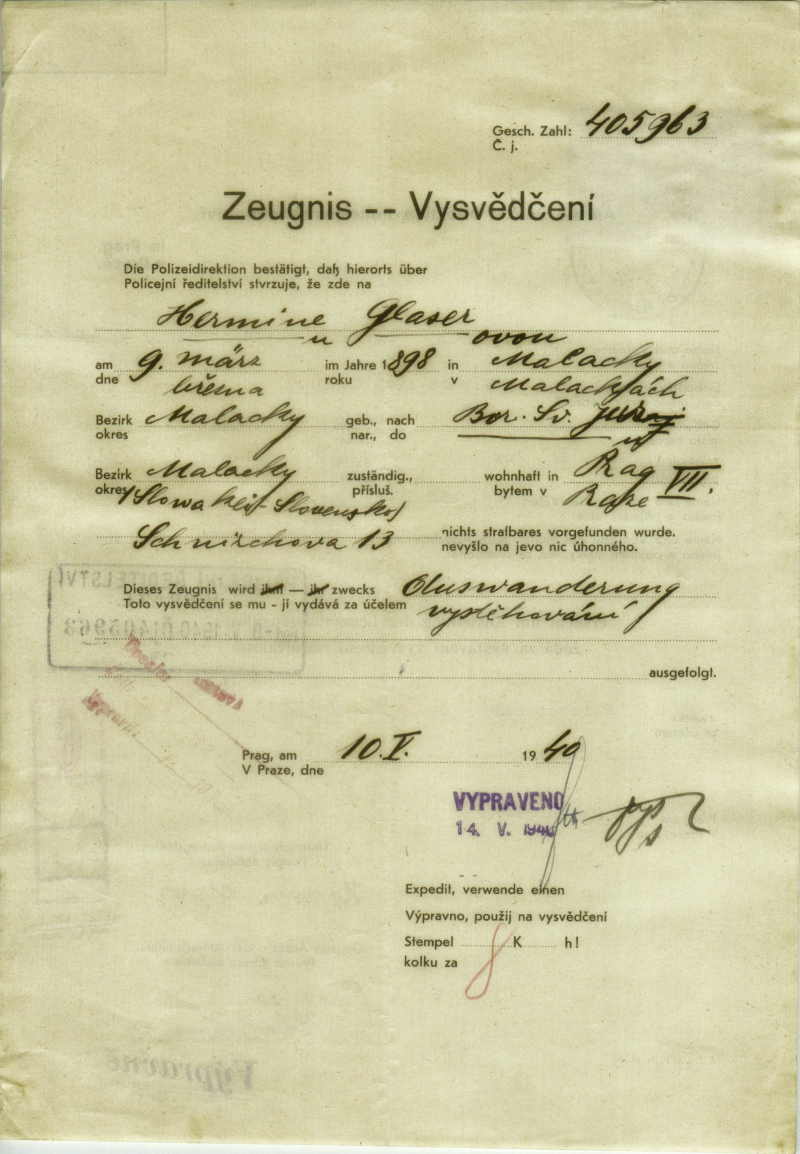 Gesch. Zahl: 405963
Č. j.
Zeugnis -- Vysvědčení
Die Polizeidirektion bestätigt, daß hierorts über
Policejní ředitelství stvrzuje, že zde na
Hermine Glaser
u ovou
am 9. märz im Jahre 1898 in Malacky
dne března roku v Malackách
Bezirk Malacky geb., nach Bor. Sv. Juraj
okres nar., do
Bezirk Malacky zuständig., wohnhaft in Prag VII.
okres přísluš. bytem v Praze
/Slowakei - Slovensko/
Schnirchova 13 nichts strafbares vorgefunden wurde.
nevyšlo na jevo nic úhonného.
Dieses Zeugnis wird ihm — ihr zwecks Auswanderung
Toto vysvědčení se mu - jí vydává za účelem vystěhování
ausgefolgt.
Prag, am 10. V. 1940
V Praze, dne
VYPRAVENO
14. V. 1940
Expedit, verwende einen
Výpravno, použij na vysvědčení
Stempel K h!
kolku za
Výpravně